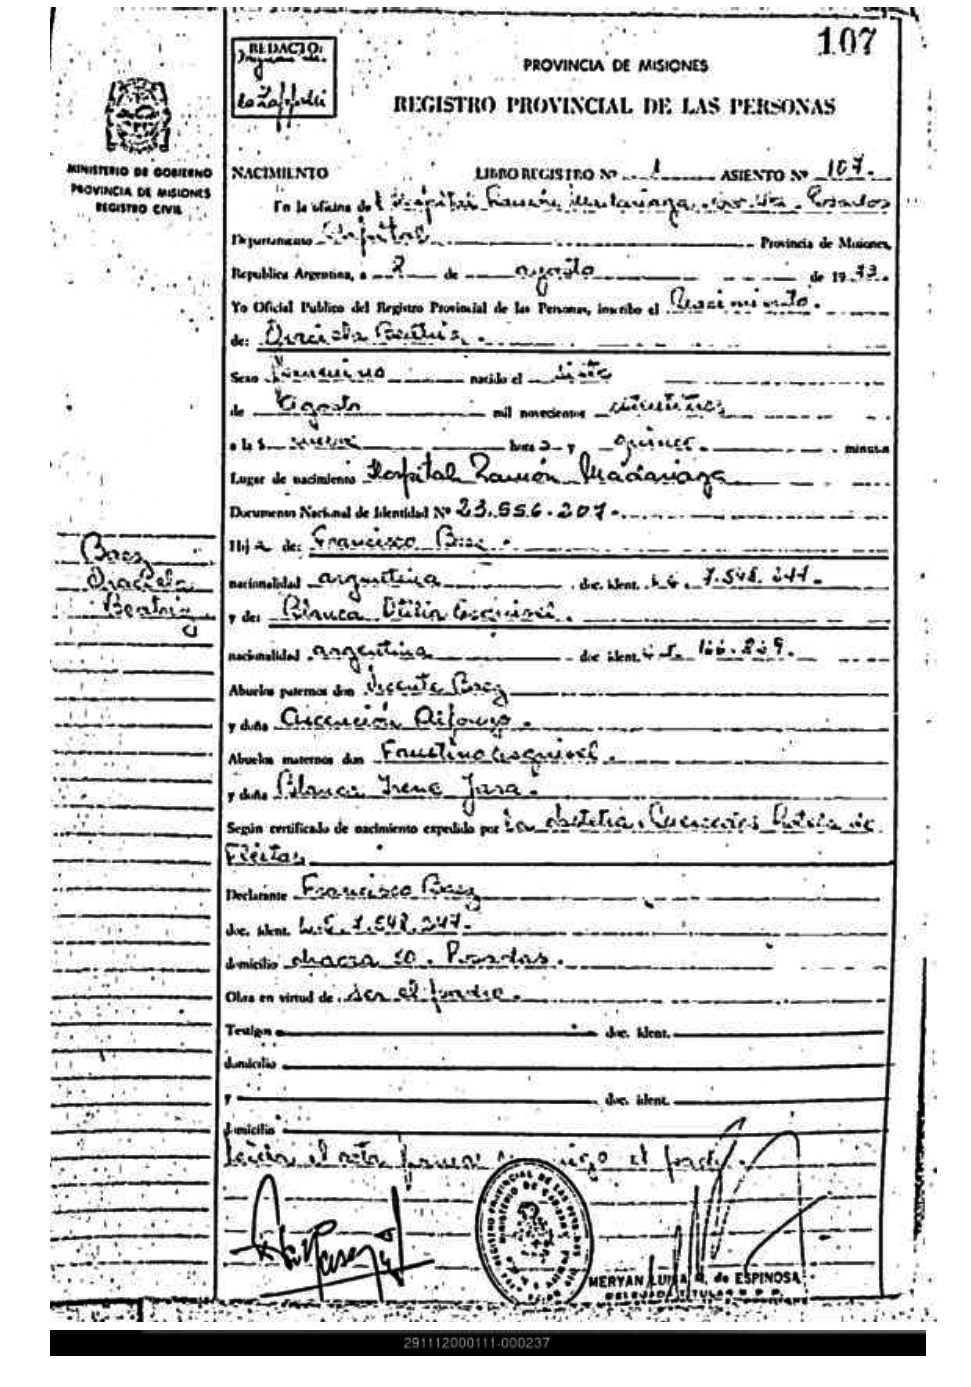 107
REDACTO:
PROVINCIA DE MISIONES
REGISTRO PROVINCIAL DE LAS PERSONAS
MINISTERIO DE GOBIERNO
PROVINCIA DE MISIONES
REGISTRO CIVIL
NACIMIENTO LIBRO REGISTRO Nº 1 ASIENTO Nº 107.
En la oficina del Hospital Ramón Madariaga Posadas
Departamento Capital Provincia de Misiones,
Republica Argentina, a de agosto de 1973.
Yo Oficial Publico del Registro Provincial de las Personas, inscribo el Nacimiento.
de: Graciela Beatriz.
Sexo Femenino nacido el siete
de Agosto mil novecientos
a la s nueve hora s y quince minutos
Lugar de nacimiento Hospital Ramón Madariaga
Documento Nacional de Identidad Nº 23.556.207.
Hij a de: Francisco Baez.
nacionalidad argentina doc. ident. L.E. 7.548.247.
y de: Blanca Otilia Esquivel.
nacionalidad argentina doc. ident.
Abuelos paternos don Vicente Baez
y doña Ascención Alfonzo.
Abuelos maternos don Faustino Esquivel.
y doña Blanca Irene Jara.
Según certificado de nacimiento expedido por la obstetra de
Fleitas
Declarante Francisco Baez
doc. ident. L.E. 7.548.247.
domicilio chacra 10. Posadas.
Obra en virtud de ser el padre.
Testigos doc. ident.
domicilio
y doc. ident.
domicilio
Leída el acta firma conmigo el padre.
Baez
Graciela
Beatriz
MERYAN LUISA R. de ESPINOSA
291112000111-000237